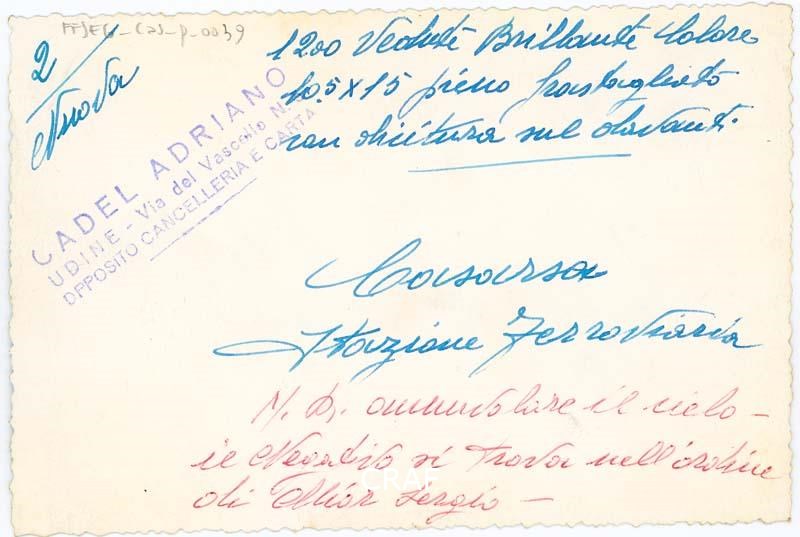 FFSEG_CaS_p_0039
2
Nuova
1200 Vedute Brillante Colore
10.5 x 15 pieno frastagliato
con dicitura sul davanti.
CADEL ADRIANO
UDINE - Via del Vascello N.
DPPOSITO CANCELLERIA E CARTA
Casarsa
Stazione Ferroviaria
N.B. annuvolare il cielo -
il Negativo si trova nell'ordine
di Mior Sergio -
CRAF